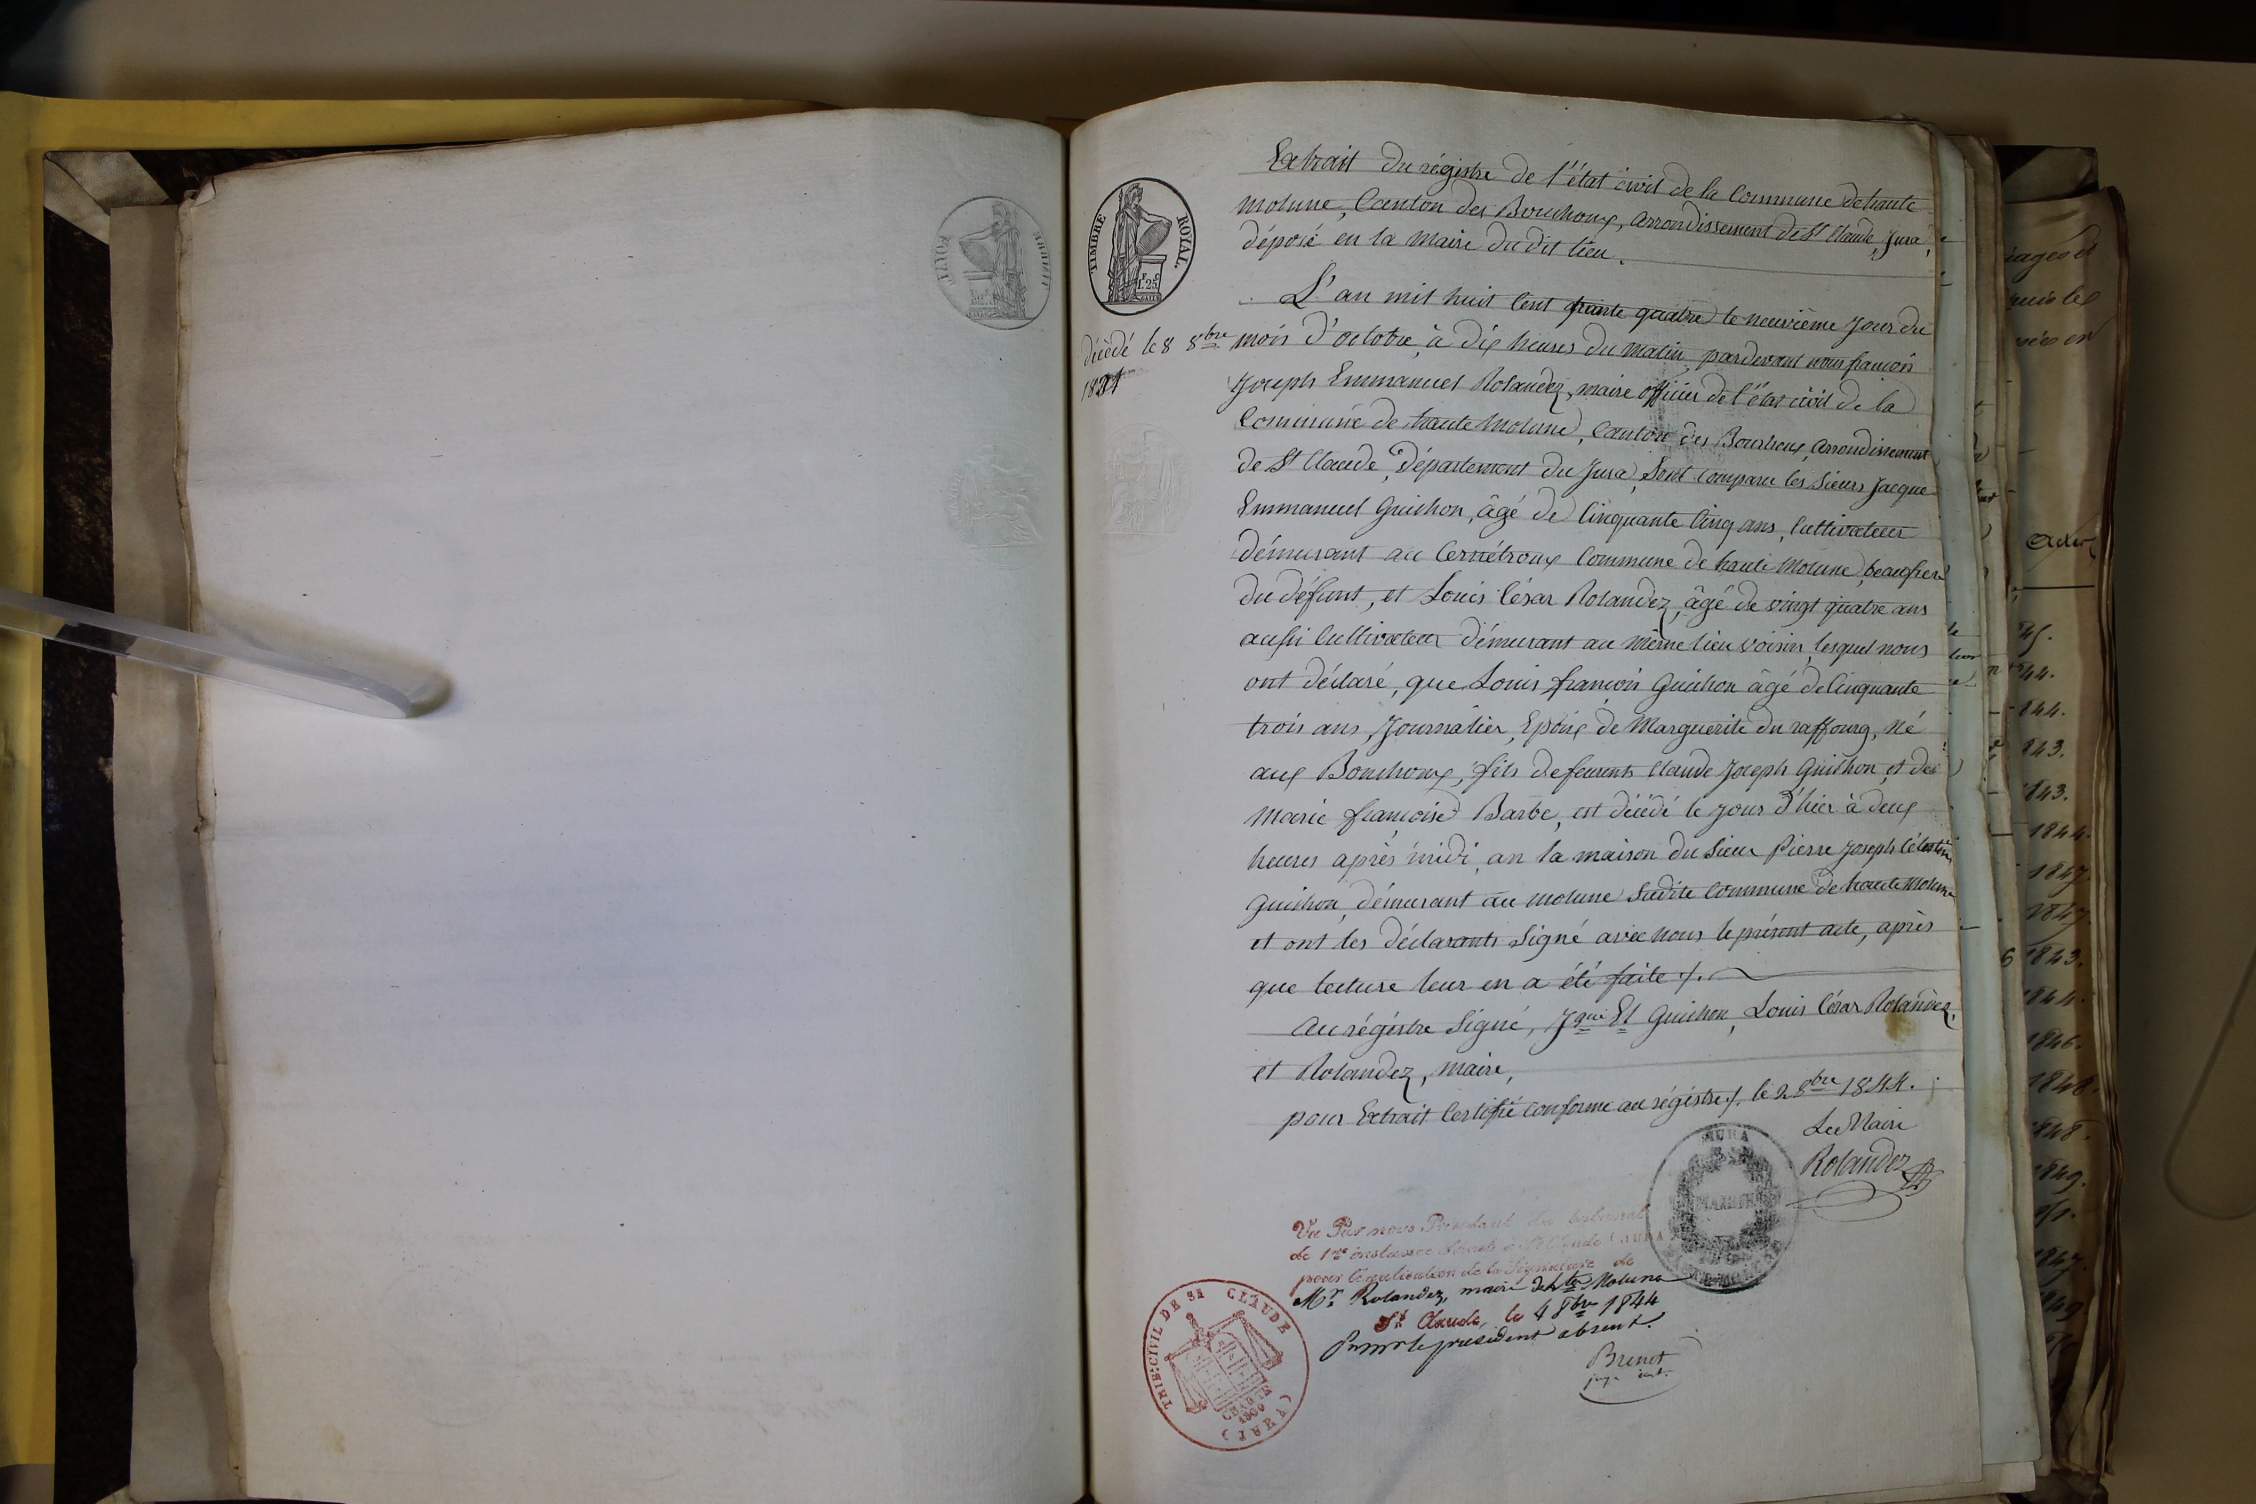 TIMBRE ROYAL.
1F 25C
décédé le 8 8bre
18
Extrait du régistre de l'état civil de la Commune de haute
Molune, Canton des Bouchoux, arrondissement de St Claude, Jura,
déposé en la Mairie du dit lieu.
L'an mil huit Cent trente quatre le neuvième jour du
mois d'octobre, à dix heures du matin, pardevant nous françois
Joseph Emmanuel Rolandez, maire officier de l'état civil de la
Commune de haute Molune, Canton des Bouchoux, arrondissement
de St Claude, département du Jura, Sont comparu les Sieurs Jacque
Emmanuel Guichon, âgé de Cinquante Cinq ans, Cultivateur
démurant au Cernétroux Commune de haute Molune, beaufrere
du défunt, et Louis César Rolandez, âgé de vingt quatre ans
aussi Cultivateur démurant au même lieu voisin, lesquel nous
ont déclaré, que Louis françois Guichon âgé de Cinquante
trois ans, Journalier, Epoux de Marguerite du raffourg, né
aux Bouchoux, fils de feurent Claude Joseph Guichon, et de
Marie françoise Barbe, est décédé le jour d'hier à deux
heures après midi, an la maison du Sieur Pierre Joseph Célestin
Guichon, démurant au molune Sudite Commune de haute Molune
et ont les déclarants Signé avec nous le présent acte, après
que lecture leur en a été faite ./.
Au régistre Signé, Jque El Guichon, Louis César Rolandez,
et Rolandez, maire,
pour Extrait Certifié conforme au régistre ./. le 2 8bre 1844.
Le Maire
Rolandez
JURA
MAIRIE
Vu Par nous Président du tribunal
de 1re instance Séant à St Claude (JURA)
pour légalisation de la Signature de
Mr. Rolandez, maire de hte Molune
St. Claude, le 4 8bre 1844
Pour le président absent.
Brenet
TRIB: CIVIL DE St CLAUDE (JURA)
CHARTE